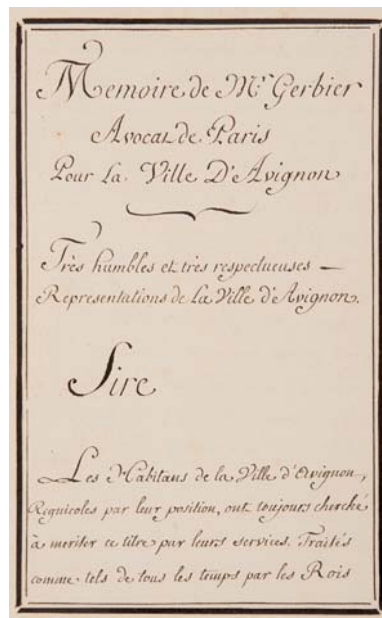 Memoire de Mr Gerbier
Avocat de Paris
Pour La Ville D'Avignon
Très humbles et très respectueuses —
Representations de La Ville d'Avignon.
Sire
Les Habitans de la Ville d'Avignon,
Regnicoles par leur position, ont toujours cherché
à meriter ce titre par leurs services. Traités
comme tels de tous les temps par les Rois